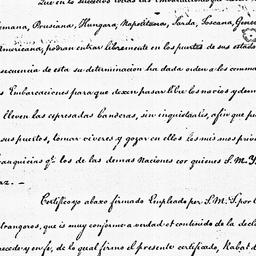 Que en lo sucesivo todas las Embarcaciones
emana, Prusiana, Hungara, Napolitana, Sarda, Toscana, Genov
Americana, podran entrar libremente en los puertos de sus estado
secuencia de esta su determinacion ha dada orden a los comma
s Embarcaciones para que dexen pasar libre los navios y demas
lleven las espresadas banderas, sin inquietarlas, afin que pue
sus puertos, tomar viveres y gozar en ellos los mismos privi
ranquicias qe. los de las demas Naciones con quienes S. M. I
az. —
Certifico yo abaxo firmado Empleado por S. M. I. por l
strangeros, que is muy conforme a verdad el contenido de la decla
recede y en fe, de lo qual firmo el presente certificado, Rabat d